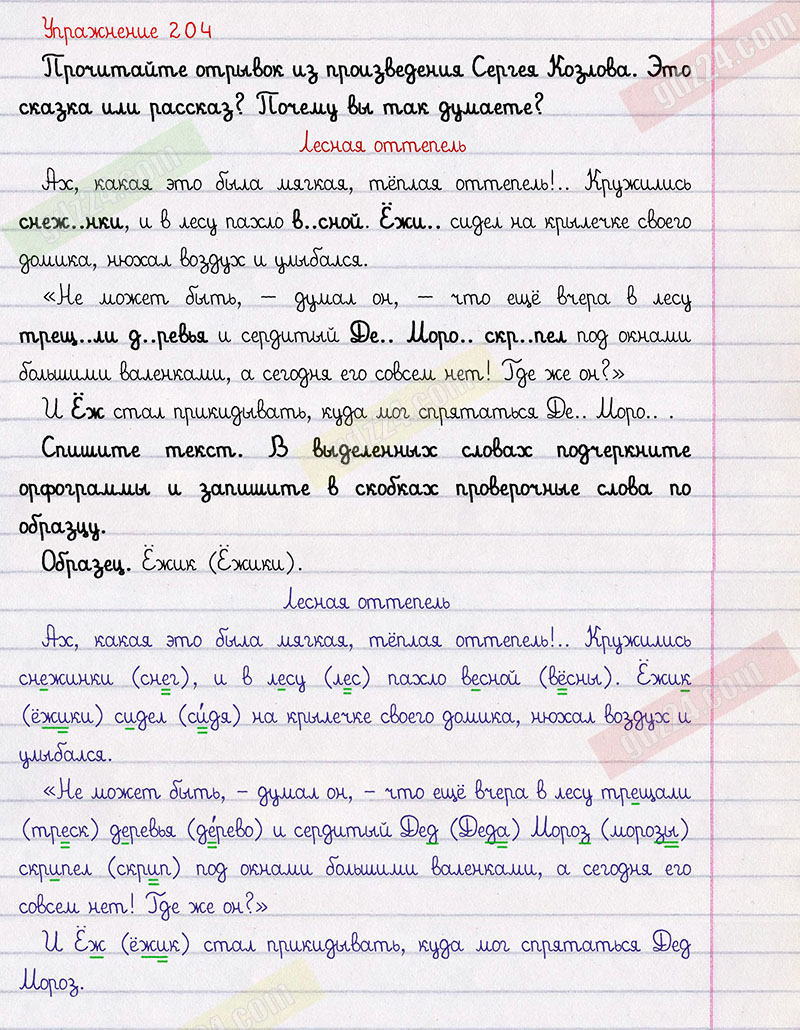 Упражнение 204
Прочитайте отрывок из произведения Сергея Козлова. Это
сказка или рассказ? Почему вы так думаете?
Лесная оттепель
Ах, какая это была мягкая, тёплая оттепель!.. Кружились
снеж..нки, и в лесу пахло в..сной. Ёжи.. сидел на крылечке своего
домика, нюхал воздух и улыбался.
«Не может быть, – думал он, – что ещё вчера в лесу
трещ..ли д..ревья и сердитый Де.. Моро.. скр..пел под окнами
большими валенками, а сегодня его совсем нет! Где же он?»
И Ёж стал прикидывать, куда мог спрятаться Де.. Моро.. .
Спишите текст. В выделенных словах подчеркните
орфограммы и запишите в скобках проверочные слова по
образцу.
Образец. Ёжик (Ёжики).
Лесная оттепель
Ах, какая это была мягкая, тёплая оттепель!.. Кружились
снежинки (снег), и в лесу (лес) пахло весной (вёсны). Ёжик
(ёжики) сидел (си́дя) на крылечке своего домика, нюхал воздух и
улыбался.
«Не может быть, – думал он, – что ещё вчера в лесу трещали
(треск) деревья (де́рево) и сердитый Дед (Деда) Мороз (морозы)
скрипел (скрип) под окнами большими валенками, а сегодня его
совсем нет! Где же он?»
И Ёж (ёжик) стал прикидывать, куда мог спрятаться Дед
Мороз.
gdz24.com
gdz24.com
gdz24.com
gdz24.com
gdz24.com